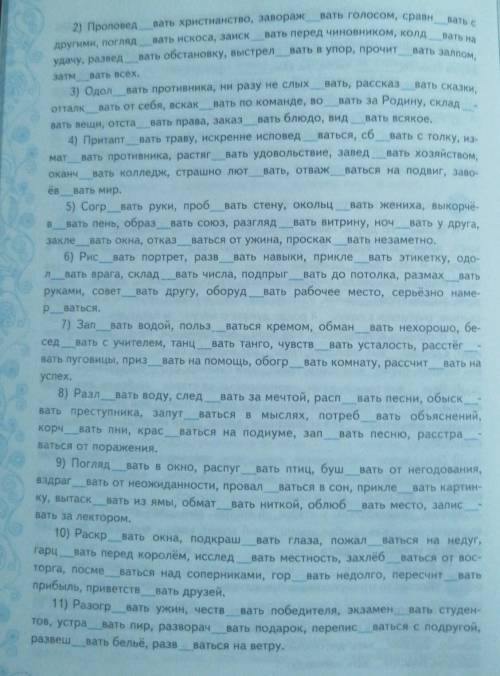 2) Проповед__вать христианство, завораж__вать голосом, сравн__вать с
другими, погляд__вать искоса, заиск__вать перед чиновником, колд__вать на
удачу, развед__вать обстановку, выстрел__вать в упор, прочит__вать залпом,
затм__вать всех.
3) Одол__вать противника, ни разу не слых__вать, рассказ__вать сказки,
отталк__вать от себя, вскак__вать по команде, во__вать за Родину, склад__-
вать вещи, отста__вать права, заказ__вать блюдо, вид__вать всякое.
4) Притапт__вать траву, искренне исповед__ваться, сб__вать с толку, из-
мат__вать противника, растяг__вать удовольствие, завед__вать хозяйством,
оканч__вать колледж, страшно лют__вать, отваж__ваться на подвиг, заво-
ёв__вать мир.
5) Согр__вать руки, проб__вать стену, окольц__вать жениха, выкорчё-
в__вать пень, образ__вать союз, разгляд__вать витрину, ноч__вать у друга,
закле__вать окна, отказ__ваться от ужина, проскак__вать незаметно.
6) Рис__вать портрет, разв__вать навыки, прикле__вать этикетку, одо-
л__вать врага, склад__вать числа, подпрыг__вать до потолка, размах__вать
руками, совет__вать другу, оборуд__вать рабочее место, серьёзно наме-
р__ваться.
7) Зап__вать водой, польз__ваться кремом, обман__вать нехорошо, бе-
сед__вать с учителем, танц__вать танго, чувств__вать усталость, расстёг__-
вать пуговицы, приз__вать на помощь, обогр__вать комнату, рассчит__вать на
успех.
8) Разл__вать воду, след__вать за мечтой, расп__вать песни, обыск__-
вать преступника, запут__ваться в мыслях, потреб__вать объяснений,
корч__вать пни, крас__ваться на подиуме, зап__вать песню, расстра__-
ваться от поражения.
9) Погляд__вать в окно, распуг__вать птиц, буш__вать от негодования,
вздраг__вать от неожиданности, провал__ваться в сон, прикле__вать картин-
ку, вытаск__вать из ямы, обмат__вать ниткой, облюб__вать место, запис__-
вать за лектором.
10) Раскр__вать окна, подкраш__вать глаза, пожал__ваться на недуг,
гарц__вать перед королём, исслед__вать местность, захлёб__ваться от вос-
торга, посме__ваться над соперниками, гор__вать недолго, пересчит__вать
прибыль, приветств__вать друзей.
11) Разогр__вать ужин, честв__вать победителя, экзамен__вать студен-
тов, устра__вать пир, разворач__вать подарок, перепис__ваться с подругой,
развеш__вать бельё, разв__ваться на ветру.